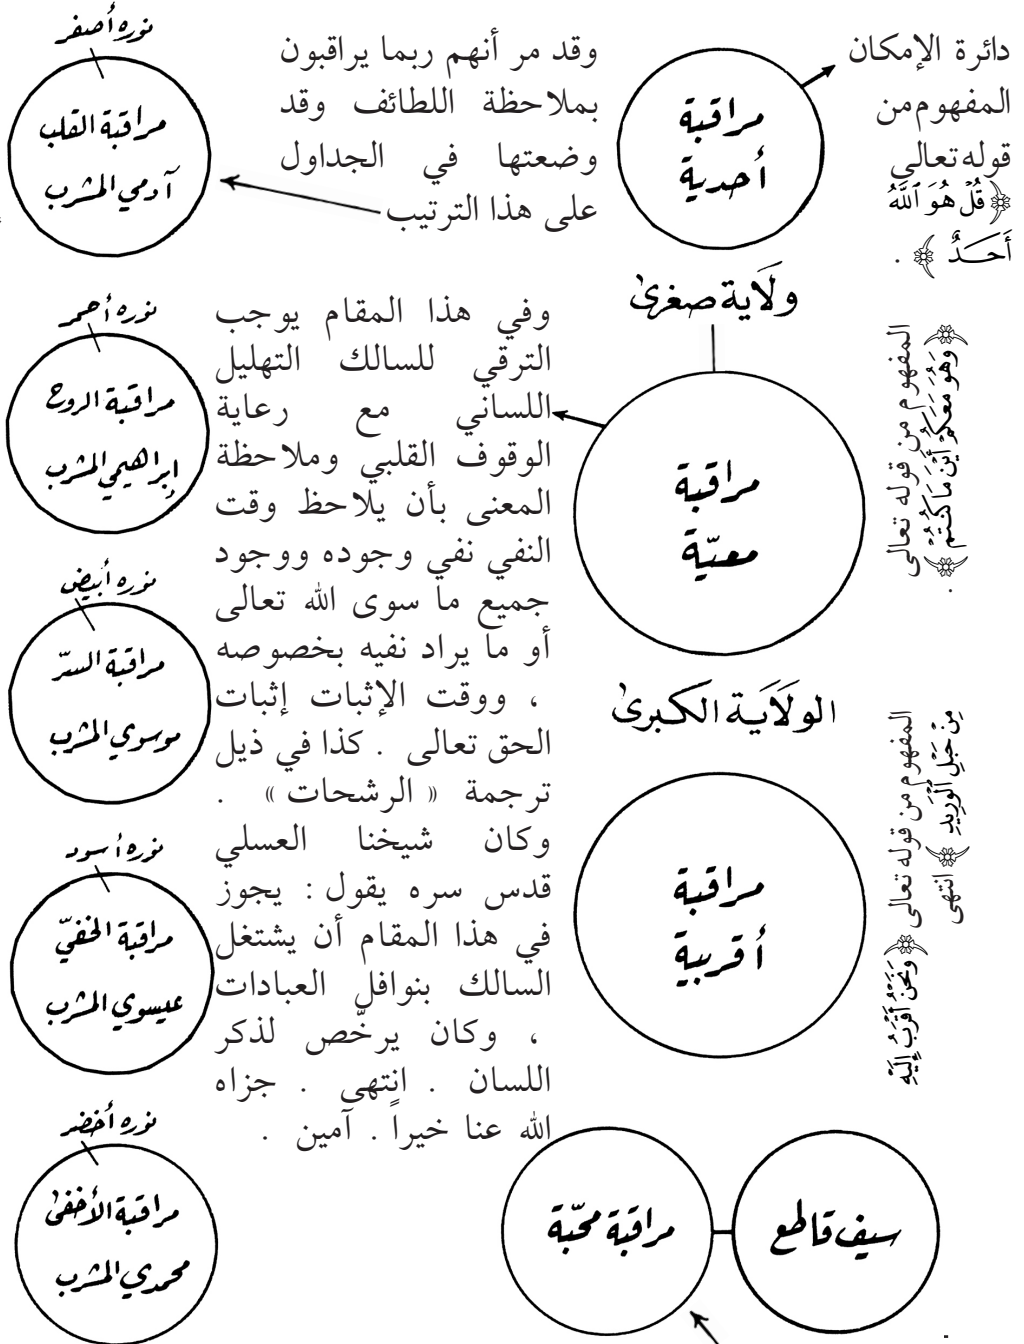 دائرة الإمكان
المفهوم من
قوله تعالى
﴿قُلْ هُوَ ٱللَّهُ
أَحَدٌ﴾ .
مراقبة
أحدية
وقد مر أنهم ربما يراقبون
بملاحظة اللطائف وقد
وضعتها في الجداول
على هذا الترتيب
نوره أصفر
مراقبة القلب
آدمي المشرب
ولَاية صغرىٰ
مراقبة
معيّة
المفهوم من قوله تعالى
﴿وَهُوَ مَعَكُمْ أَيْنَ مَا كُنتُمْ﴾ .
وفي هذا المقام يوجب
الترقي للسالك التهليل
اللساني مع رعاية
الوقوف القلبي وملاحظة
المعنى بأن يلاحظ وقت
النفي نفي وجوده ووجود
جميع ما سوى الله تعالى
أو ما يراد نفيه بخصوصه
، ووقت الإثبات إثبات
الحق تعالى . كذا في ذيل
ترجمة « الرشحات » .
وكان شيخنا العسلي
قدس سره يقول : يجوز
في هذا المقام أن يشتغل
السالك بنوافل العبادات
، وكان يرخَّص لذكر
اللسان . انتهى . جزاه
الله عنا خيراً . آمين .
نوره أحمر
مراقبة الروح
إبراهيمي المشرب
نوره أبيض
مراقبة السرّ
موسوي المشرب
نوره أسود
مراقبة الخفيّ
عيسوي المشرب
نوره أخضر
مراقبة الأخفىٰ
محمدي المشرب
الولَاَية الكبرىٰ
مراقبة
أقربية
المفهوم من قوله تعالى ﴿وَنَحْنُ أَقْرَبُ إِلَيْهِ
مِنْ حَبْلِ ٱلْوَرِيدِ﴾ انتهى
سيف قاطع
مراقبة محبّة